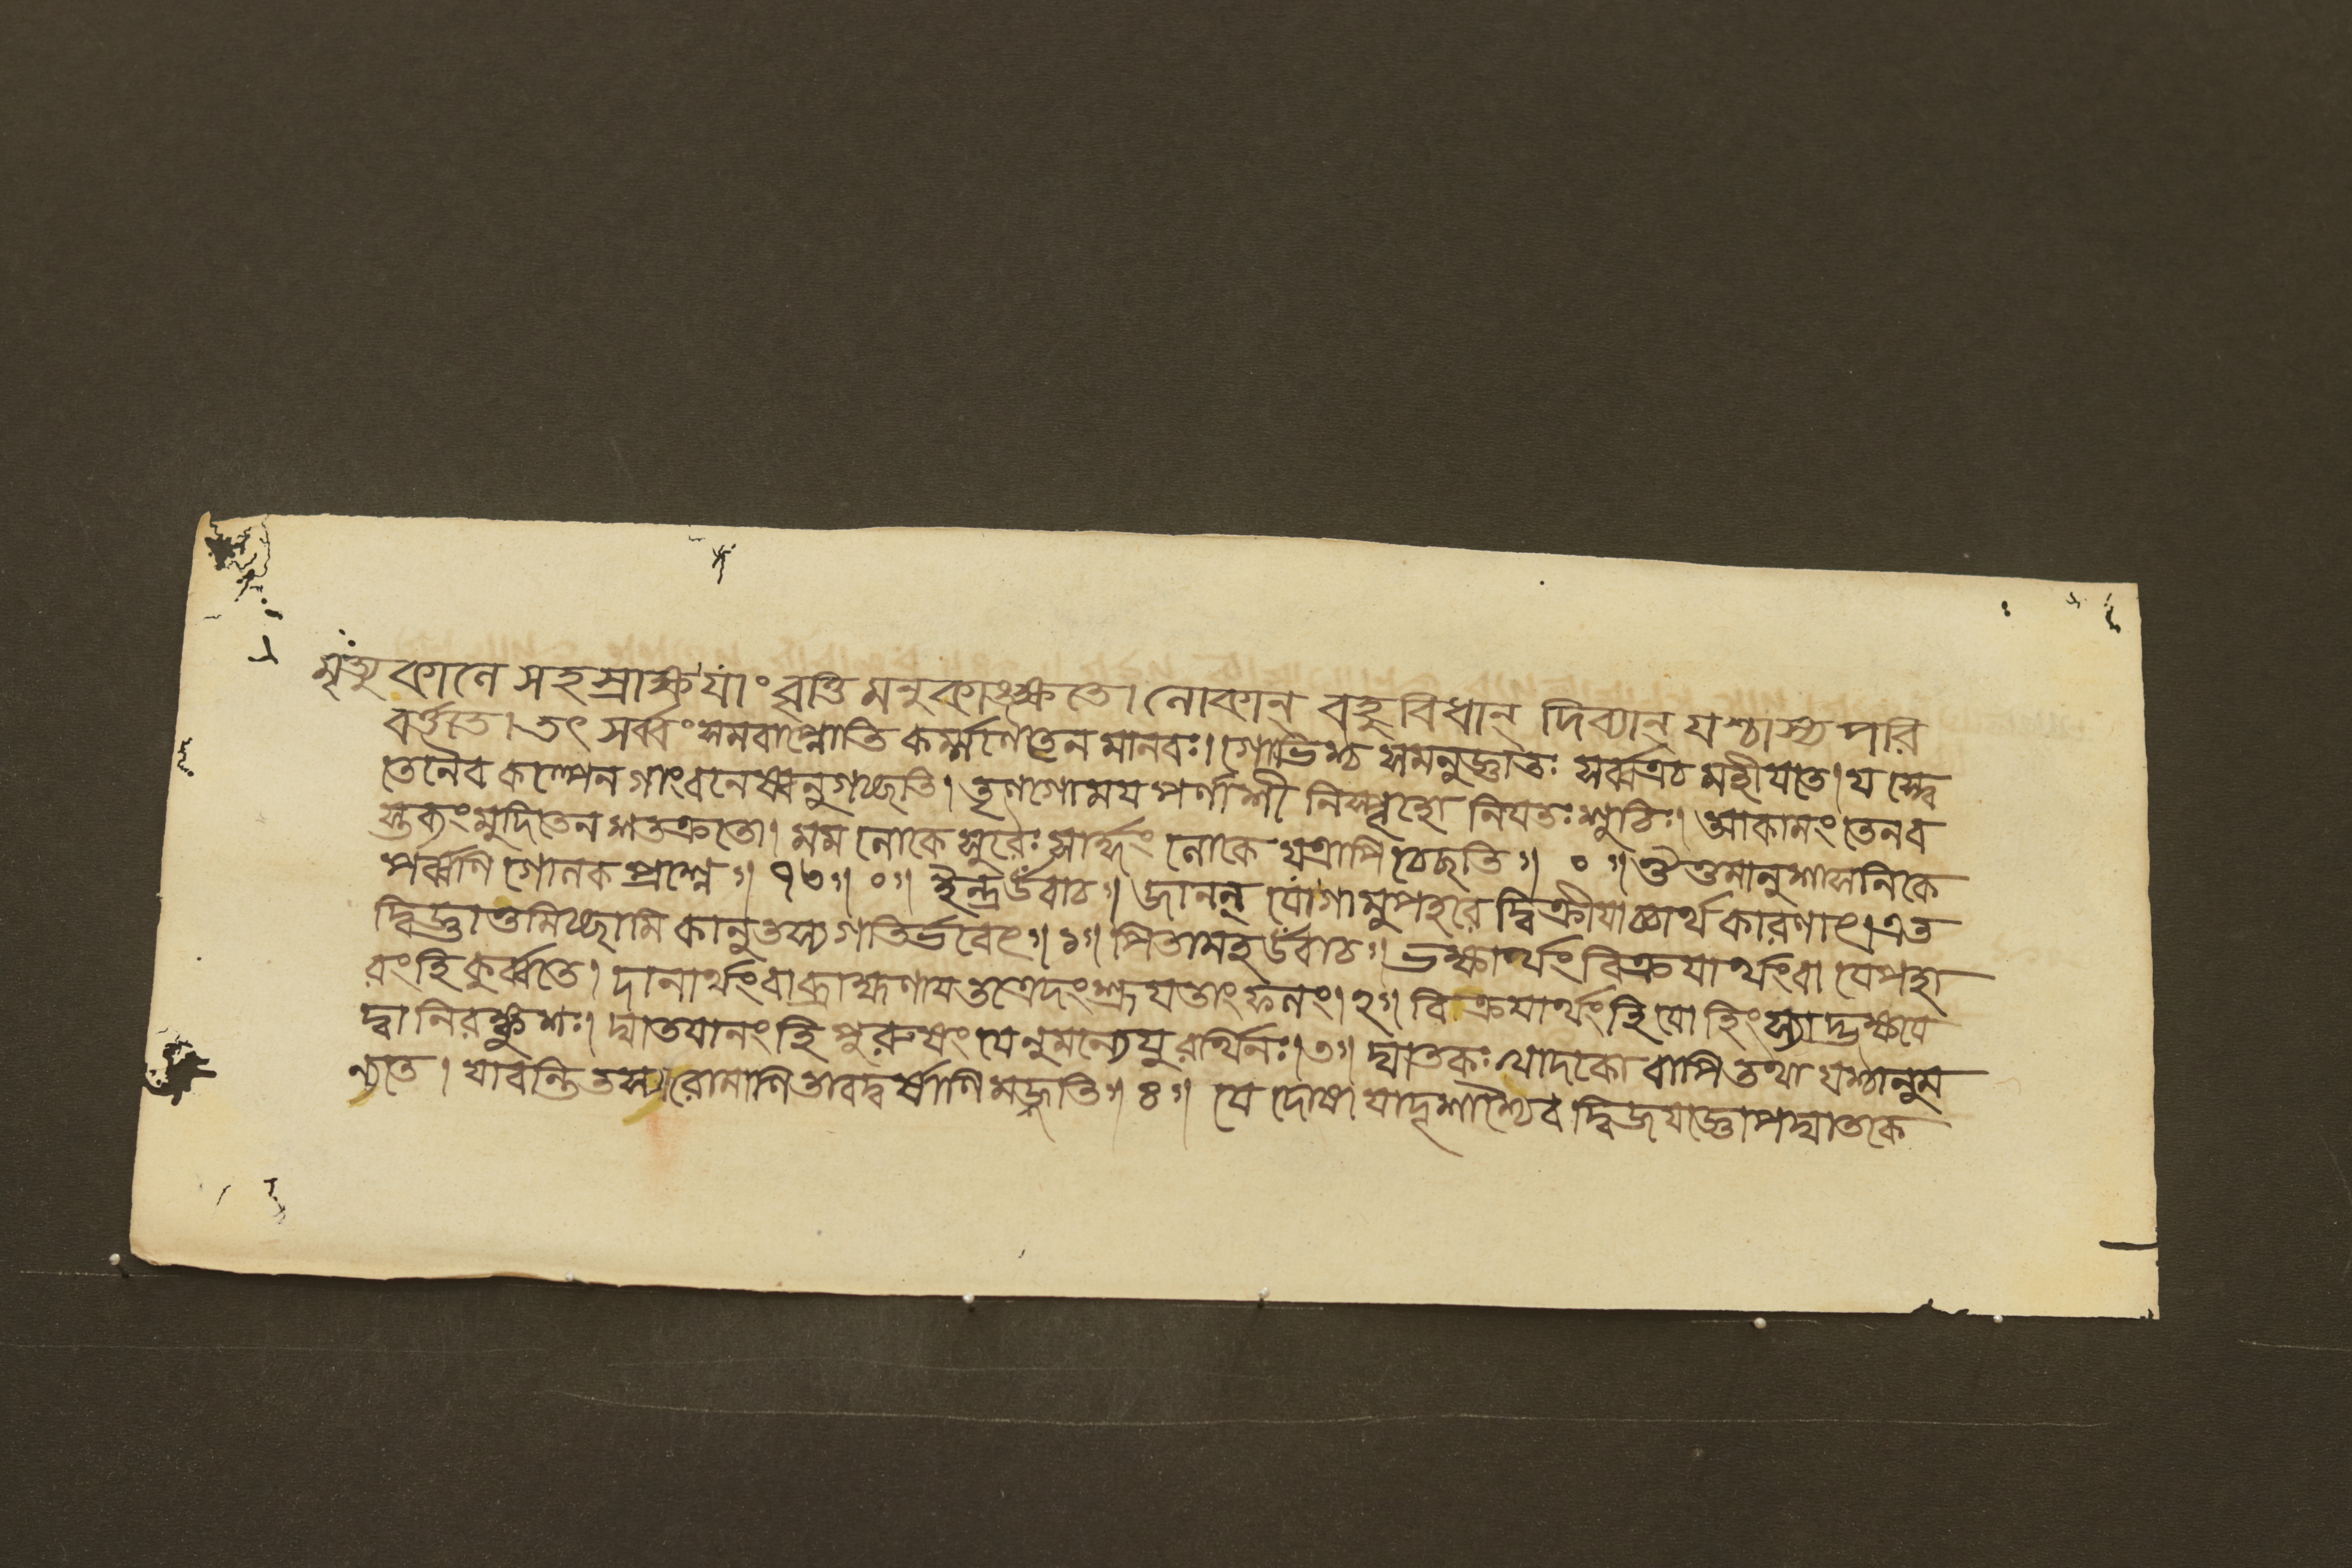 মৃত্যুকালে সহস্রাক্ষ যাং বৃত্তিমনুকাঙ্ক্ষতে। লোকান্ বহুবিধান্ দিব্যান্ যশ্চাস্য পরি
বর্ত্ততে। তৎ সর্ব্বং সমবাপ্নোতি কর্ম্মণৈতেন মানবঃ। গোভিশ্চ সমনুজ্ঞাতঃ সর্ব্বত্রচ মহীযতে। য স্ত্বে
তেনৈব কল্পেন গাংবনেষ্বনুগচ্ছতি। তৃণগোময পর্ণাশী নিস্পৃহো নিযতঃ শুচিঃ। অকামং তেনব
স্তব্যং মুদিতেন শতক্রতো। মম লোকে সুরৈঃ সার্দ্ধং লোকে যত্রাপি চেছতি॥ ০ ॥ ঔত্তমানুশাসনিকে
পর্ব্বণি গোলক প্রশ্নে॥ ৭৩॥ ০॥ ইন্দ্র উবাচ॥ জানন্ যো গামুপহরে দ্বিক্রীযাচ্চার্থ কারণাৎ। এত
দ্বিজ্ঞাতুমিচ্ছামি কানুতস্য গতির্ভবেৎ॥ ১॥ পিতামহ উবাচ॥ ভক্ষার্থং বিক্রযার্থংবা যেপহা
রংহি কুর্ব্বতে। দানার্থংবা ব্রাহ্মণায তত্রেদং শ্রূযতাং ফলং। ২॥ বিক্রযার্থংহি যো হিংস্যাদ্ভক্ষযে
দ্বা নিরঙ্কুশঃ। ঘাতযানং হি পুরুষং যেনুমন্যেযুরর্থিনঃ। ৩॥ ঘাতকঃ খাদকো বাপি তথা যশ্চানুম
ন্যতে। যাবন্তি তস্যা রোমাণি তাবদ্বর্ষাণি মজ্জতি॥ ৪॥ যে দোষা যাদৃশাশ্চৈব দ্বিজযজ্ঞোপঘাতকে